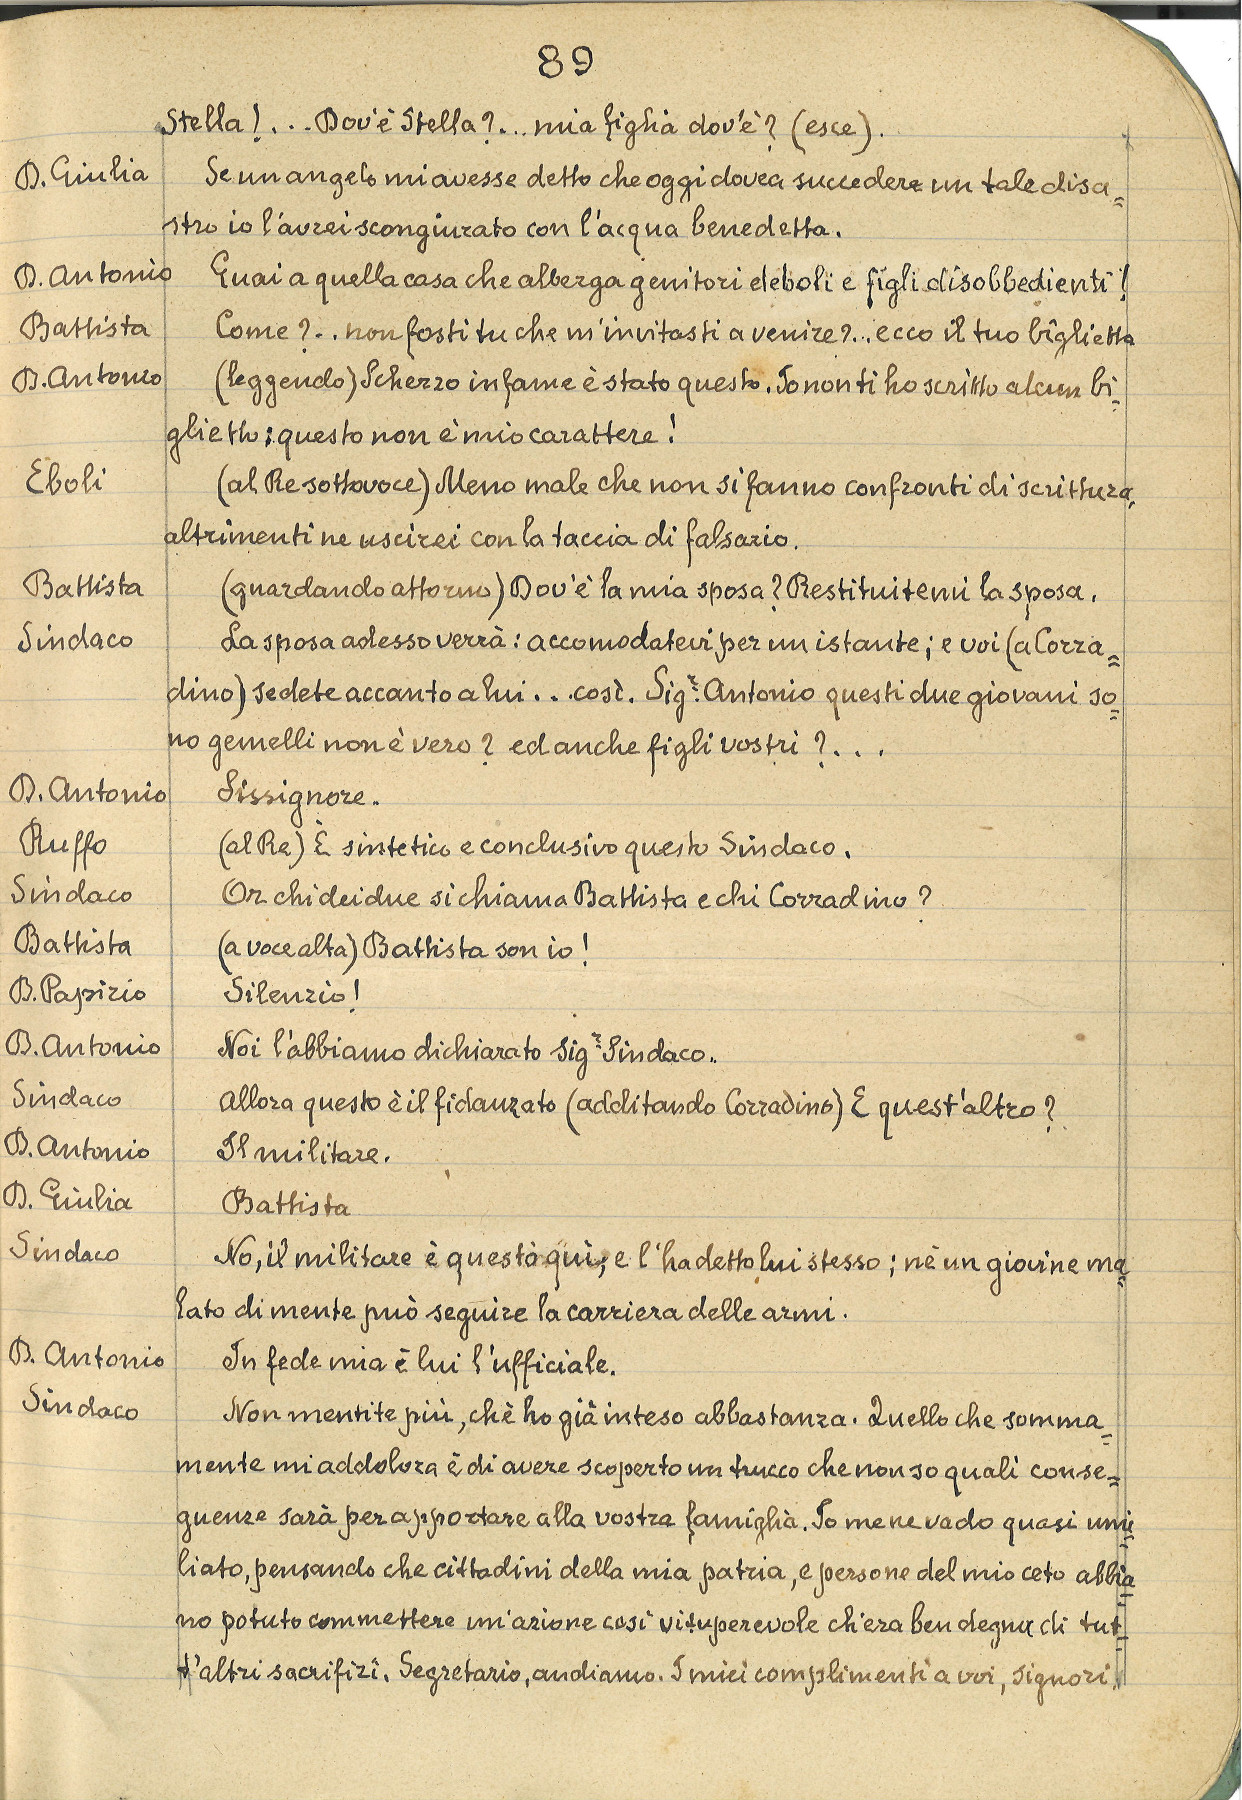 89
Stella!... Dov'è Stella?... mia figlia dov'è? (esce).
D. Giulia Se un angelo mi avesse detto che oggi dovea succedere un tale disa=
stro io l'avrei scongiurato con l'acqua benedetta.
D. Antonio Guai a quella casa che alberga genitori deboli e figli disobbedienti!
Battista Come?.. non fosti tu che m'invitasti a venire?.. ecco il tuo biglietto
D. Antonio (leggendo) Scherzo infame è stato questo. Io non ti ho scritto alcun bi=
glietto: questo non è mio carattere!
Eboli (al Re sottovoce) Meno male che non si fanno confronti di scrittura,
altrimenti ne uscirei con la taccia di falsario.
Battista (guardando attorno) Dov'è la mia sposa? Restituitemi la sposa.
Sindaco La sposa adesso verrà: accomodatevi per un istante; e voi (a Corra=
dino) sedete accanto a lui... così. Sigr. Antonio questi due giovani so=
no gemelli non è vero? ed anche figli vostri?...
D. Antonio Sissignore.
Ruffo (al Re) È sintetico e conclusivo questo Sindaco.
Sindaco Or chi dei due si chiama Battista e chi Corradino?
Battista (a voce alta) Battista son io!
D. Papirio Silenzio!
D. Antonio Noi l'abbiamo dichiarato Sigr. Sindaco.
Sindaco Allora questo è il fidanzato (additando Corradino) E quest'altro?
D. Antonio Il militare.
D. Giulia Battista
Sindaco No, il militare è questo quì, e l'ha detto lui stesso; nè un giovine ma=
lato di mente può seguire la carriera delle armi.
D. Antonio In fede mia è lui l'ufficiale.
Sindaco Non mentite più, chè ho già inteso abbastanza. Quello che somma=
mente mi addolora è di avere scoperto un trucco che non so quali conse=
guenze sarà per apportare alla vostra famiglia. Io me ne vado quasi umi=
liato, pensando che cittadini della mia patria, e persone del mio ceto abbia=
no potuto commettere un'azione così vituperevole ch'era ben degna di tut=
t'altri sacrifizi. Segretario, andiamo. I miei complimenti a voi, signori.